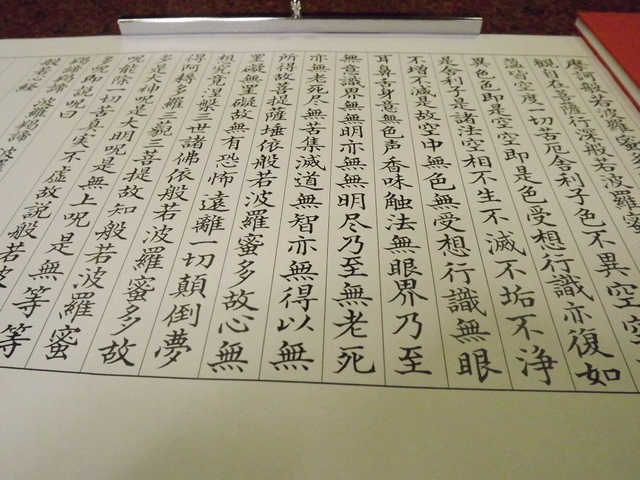 摩訶般若波羅蜜
観自在菩薩行深般若波羅蜜
蘊皆空度一切苦厄舎利子色不異空空
異色色即是空空即是色受想行識亦復如
是舎利子是諸法空相不生不滅不垢不浄
不増不減是故空中無色無受想行識無眼
耳鼻舌身意無色声香味触法無眼界乃至
無意識界無無明亦無無明尽乃至無老死
亦無老死尽無苦集滅道無智亦無得以無
所得故菩提薩埵依般若波羅蜜多故心無
罣礙無罣礙故無有恐怖遠離一切顛倒夢
想究竟涅槃三世諸佛依般若波羅蜜多故
得阿耨多羅三藐三菩提故知般若波羅蜜
多是大神呪是大明呪是無上呪是無等等
呪能除一切苦真実不虚故説般若波
多呪即説呪曰
羯諦羯諦 波羅羯諦 波
般若心経